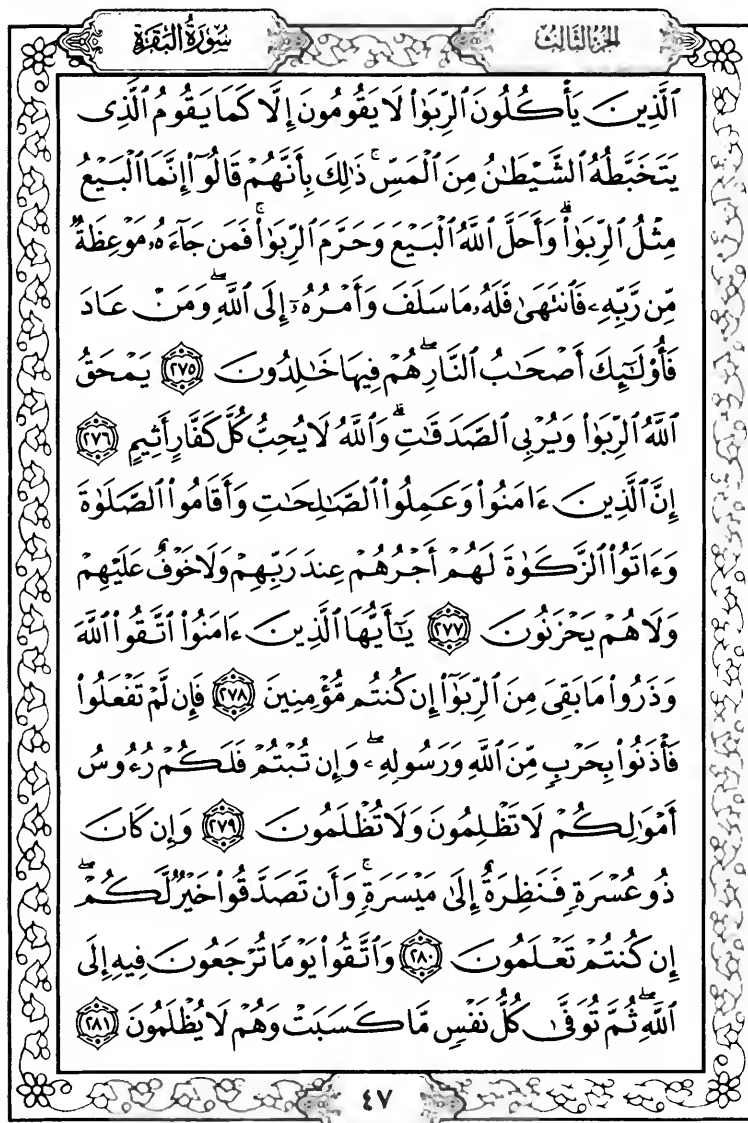 سُورَةُ البَقَرَةِ
الجزء الثالث
ٱلَّذِينَ يَأۡكُلُونَ ٱلرِّبَوٰاْ لَا يَقُومُونَ إِلَّا كَمَا يَقُومُ ٱلَّذِى
يَتَخَبَّطُهُ ٱلشَّيۡطَٰنُ مِنَ ٱلۡمَسِّۚ ذَٰلِكَ بِأَنَّهُمۡ قَالُوٓاْ إِنَّمَا ٱلۡبَيۡعُ
مِثۡلُ ٱلرِّبَوٰاْۗ وَأَحَلَّ ٱللَّهُ ٱلۡبَيۡعَ وَحَرَّمَ ٱلرِّبَوٰاْۚ فَمَن جَآءَهُۥ مَوۡعِظَةٌ
مِّن رَّبِّهِۦ فَٱنتَهَىٰ فَلَهُۥ مَا سَلَفَ وَأَمۡرُهُۥٓ إِلَى ٱللَّهِۖ وَمَنۡ عَادَ
فَأُوْلَٰٓئِكَ أَصۡحَٰبُ ٱلنَّارِۖ هُمۡ فِيهَا خَٰلِدُونَ ٢٧٥ يَمۡحَقُ
ٱللَّهُ ٱلرِّبَوٰاْ وَيُرۡبِى ٱلصَّدَقَٰتِۗ وَٱللَّهُ لَا يُحِبُّ كُلَّ كَفَّارٍ أَثِيمٍ ٢٧٦
إِنَّ ٱلَّذِينَ ءَامَنُواْ وَعَمِلُواْ ٱلصَّٰلِحَٰتِ وَأَقَامُواْ ٱلصَّلَوٰةَ
وَءَاتَوُاْ ٱلزَّكَوٰةَ لَهُمۡ أَجۡرُهُمۡ عِندَ رَبِّهِمۡ وَلَا خَوۡفٌ عَلَيۡهِمۡ
وَلَا هُمۡ يَحۡزَنُونَ ٢٧٧ يَٰٓأَيُّهَا ٱلَّذِينَ ءَامَنُواْ ٱتَّقُواْ ٱللَّهَ
وَذَرُواْ مَا بَقِىَ مِنَ ٱلرِّبَوٰٓاْ إِن كُنتُم مُّؤۡمِنِينَ ٢٧٨ فَإِن لَّمۡ تَفۡعَلُواْ
فَأۡذَنُواْ بِحَرۡبٍ مِّنَ ٱللَّهِ وَرَسُولِهِۦۖ وَإِن تُبۡتُمۡ فَلَكُمۡ رُءُوسُ
أَمۡوَٰلِكُمۡ لَا تَظۡلِمُونَ وَلَا تُظۡلَمُونَ ٢٧٩ وَإِن كَانَ
ذُو عُسۡرَةٍ فَنَظِرَةٌ إِلَىٰ مَيۡسَرَةٍۚ وَأَن تَصَدَّقُواْ خَيۡرٌ لَّكُمۡۖ
إِن كُنتُمۡ تَعۡلَمُونَ ٢٨٠ وَٱتَّقُواْ يَوۡمًا تُرۡجَعُونَ فِيهِ إِلَى
ٱللَّهِۖ ثُمَّ تُوَفَّىٰ كُلُّ نَفۡسٍ مَّا كَسَبَتۡ وَهُمۡ لَا يُظۡلَمُونَ ٢٨١
٤٧